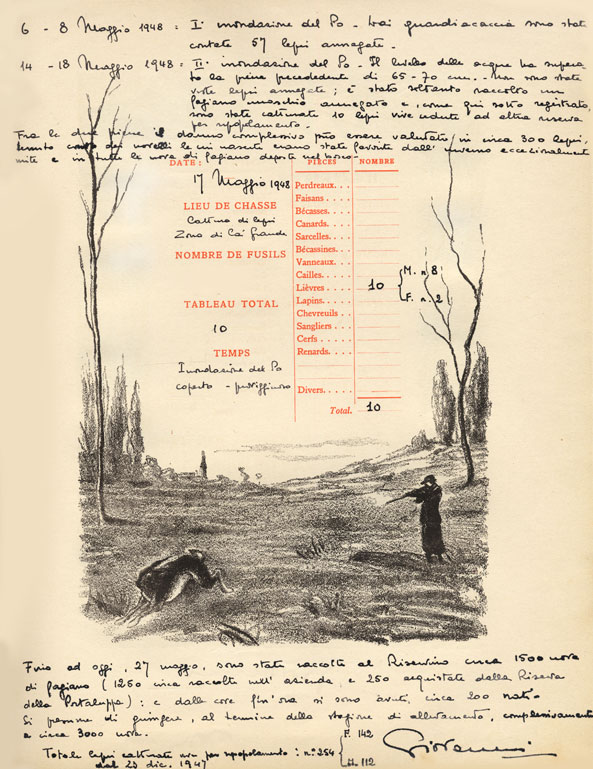 6 - 8 Maggio 1948 = I° inondazione del Po - Dai guardiacaccia sono state
contate 57 lepri annegate -
14 - 18 Maggio 1948 = II° inondazione del Po - Il livello delle acque ha supera-
to la piena precedente di 65-70 cm. - Non sono state
viste lepri annegate; è stato soltanto raccolto un
fagiano maschio annegato e, come qui sotto registrato,
sono state catturate 10 lepri vive cedute ad altra riserva
per ripopolamento.
Fra le due piene il danno complessivo può essere valutato in circa 300 lepri,
tenuto conto dei novelli le cui nascite erano state favorite dall'inverno eccezionalmente
mite e in tutte le uova di fagiano deposte nel bosco.
DATE:
17 Maggio 1948
LIEU DE CHASSE
Cattura di lepri
Zona di Ca' Grande
NOMBRE DE FUSILS
TABLEAU TOTAL
10
TEMPS
Inondazione del Po
coperto - piovigginoso
PIÈCES NOMBRE
Perdreaux. . .
Faisans . . . .
Bécasses. . . .
Canards. . . .
Sarcelles. . . .
Bécassines. . .
Vanneaux. . .
Cailles. . . . .
Lièvres . . . . 10 { M. n. 8
F. n. 2
Lapins. . . . .
Chevreuils . .
Sangliers . . .
Cerfs . . . . .
Renards. . . .
Divers. . . . .
Total. 10
Fino ad oggi, 27 maggio, sono state raccolte al Riservino circa 1500 uova
di fagiano (1250 circa raccolte nell'azienda, e 250 acquistate dalla Riserva
della Portaluppa): e dalle cove fin'ora si sono avuti, circa 200 nati.
Si presume di giungere, al termine della stagione di allevamento, complessivamente
a circa 3000 uova.
Totale lepri catturate per ripopolamento: n° 254 { F. 142
dal 23 dic. 1947 M. 112
Giovanni